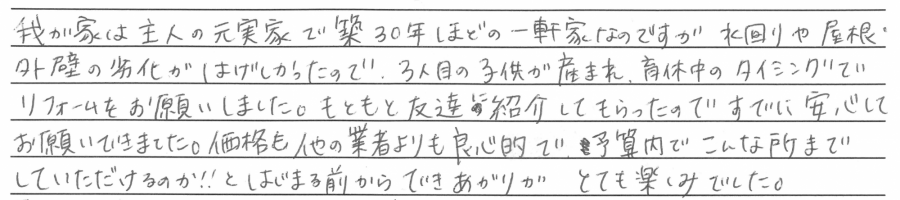 我が家は主人の元実家で築30年ほどの一軒家なのですが 水回りや屋根・
外壁の劣化がはげしかったので、3人目の子供が産まれ、育休中のタイミングで
リフォームをお願いしました。もともと友達に紹介してもらったのですでに安心して
お願いできました。価格も他の業者よりも良心的で、予算内でこんな所まで
していただけるのか!!とはじまる前からできあがりが とても楽しみでした。